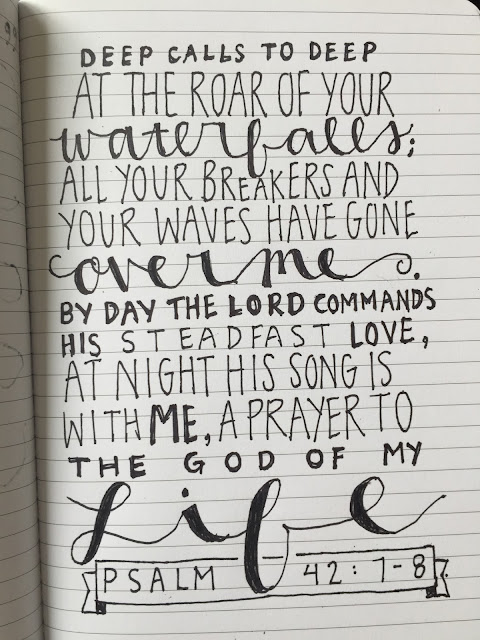 DEEP CALLS TO DEEP
AT THE ROAR OF YOUR
waterfalls;
ALL YOUR BREAKERS AND
YOUR WAVES HAVE GONE
over me.
BY DAY THE LORD COMMANDS
HIS STEADFAST LOVE,
AT NIGHT HIS SONG IS
WITH ME, A PRAYER TO
THE GOD OF MY
Life
PSALM 42:7-8